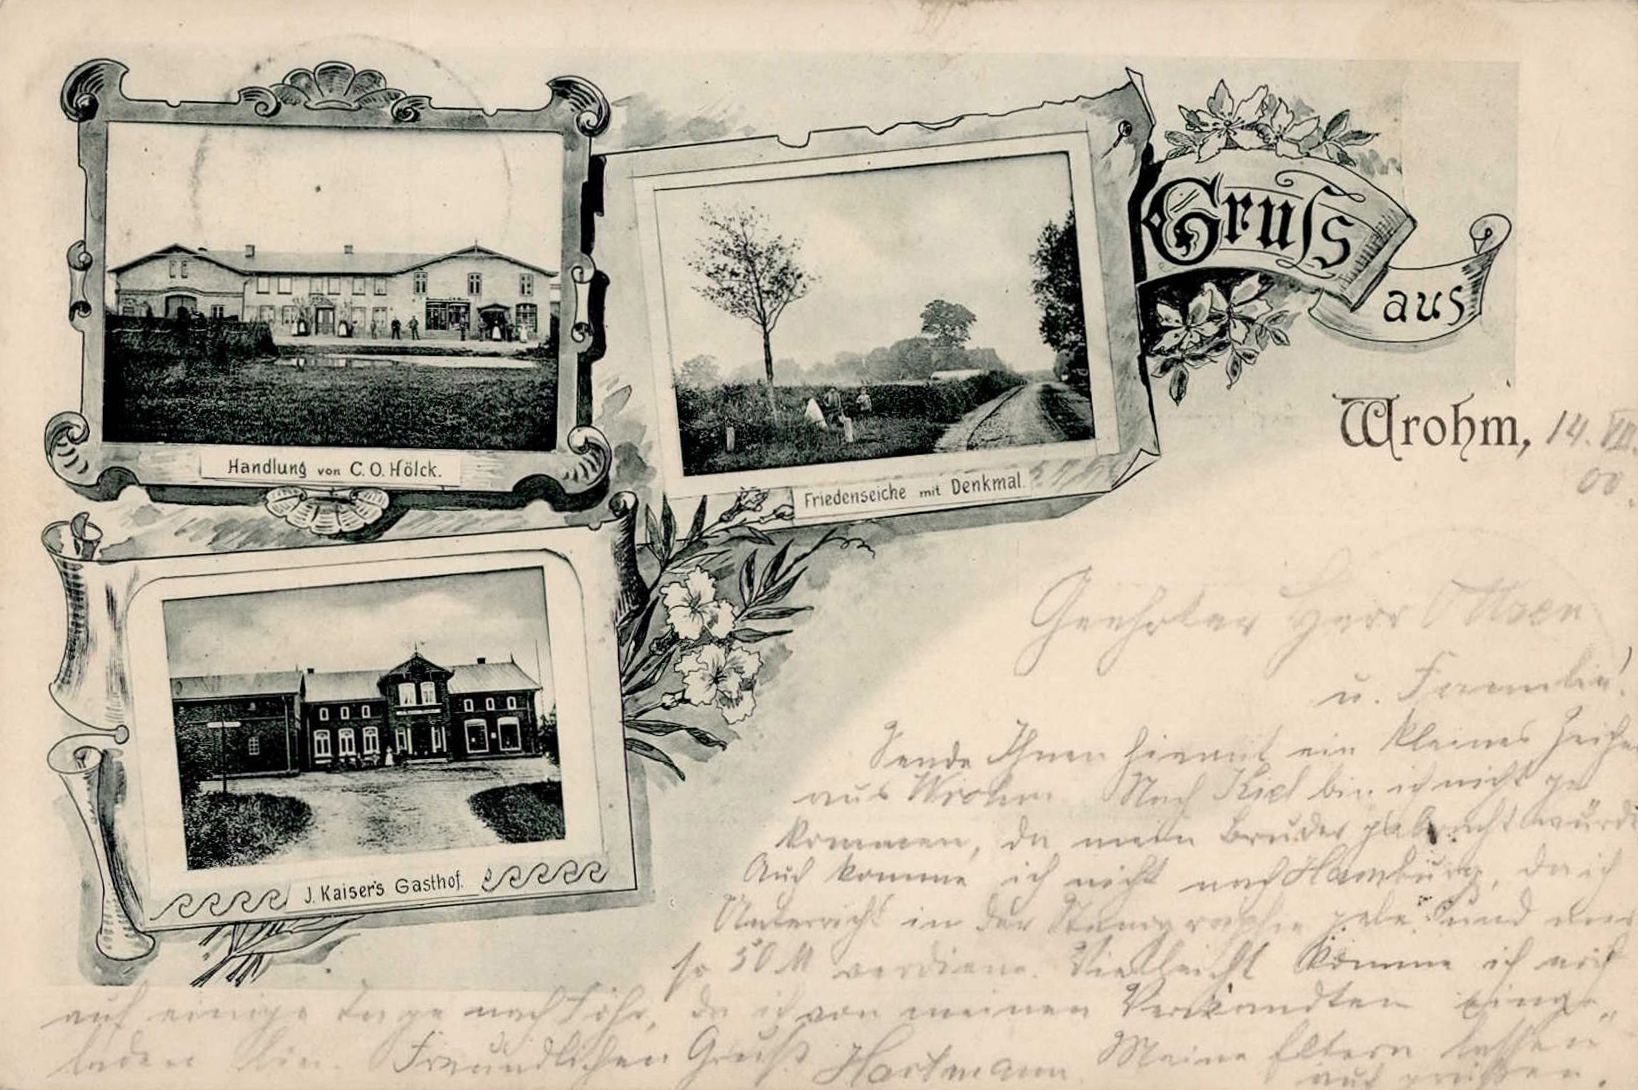 Gruſs
aus
Wrohm, 14. VII.
00.
Handlung von C. O. Hölck.
Friedenseiche mit Denkmal.
J. Kaiser's Gasthof.
Geehrter Herr
u. Familie!
Sende Ihnen hiermit ein kleines Zeichen
aus Wrohm. Nach Kiel bin ich nicht ge
kommen, da mein Bruder gebracht würde
Auch komme ich nicht nach Hamburg, da ich
Unterricht in der Stenographie gebe und mir
so 50 M verdiene. Vielleicht komme ich noch
auf einige Tage nach Föhr, da ich von meinen Verwandten einge„
laden bin. Freundlichen Gruß Hartmann. Meine Eltern lassen
auch grüßen.